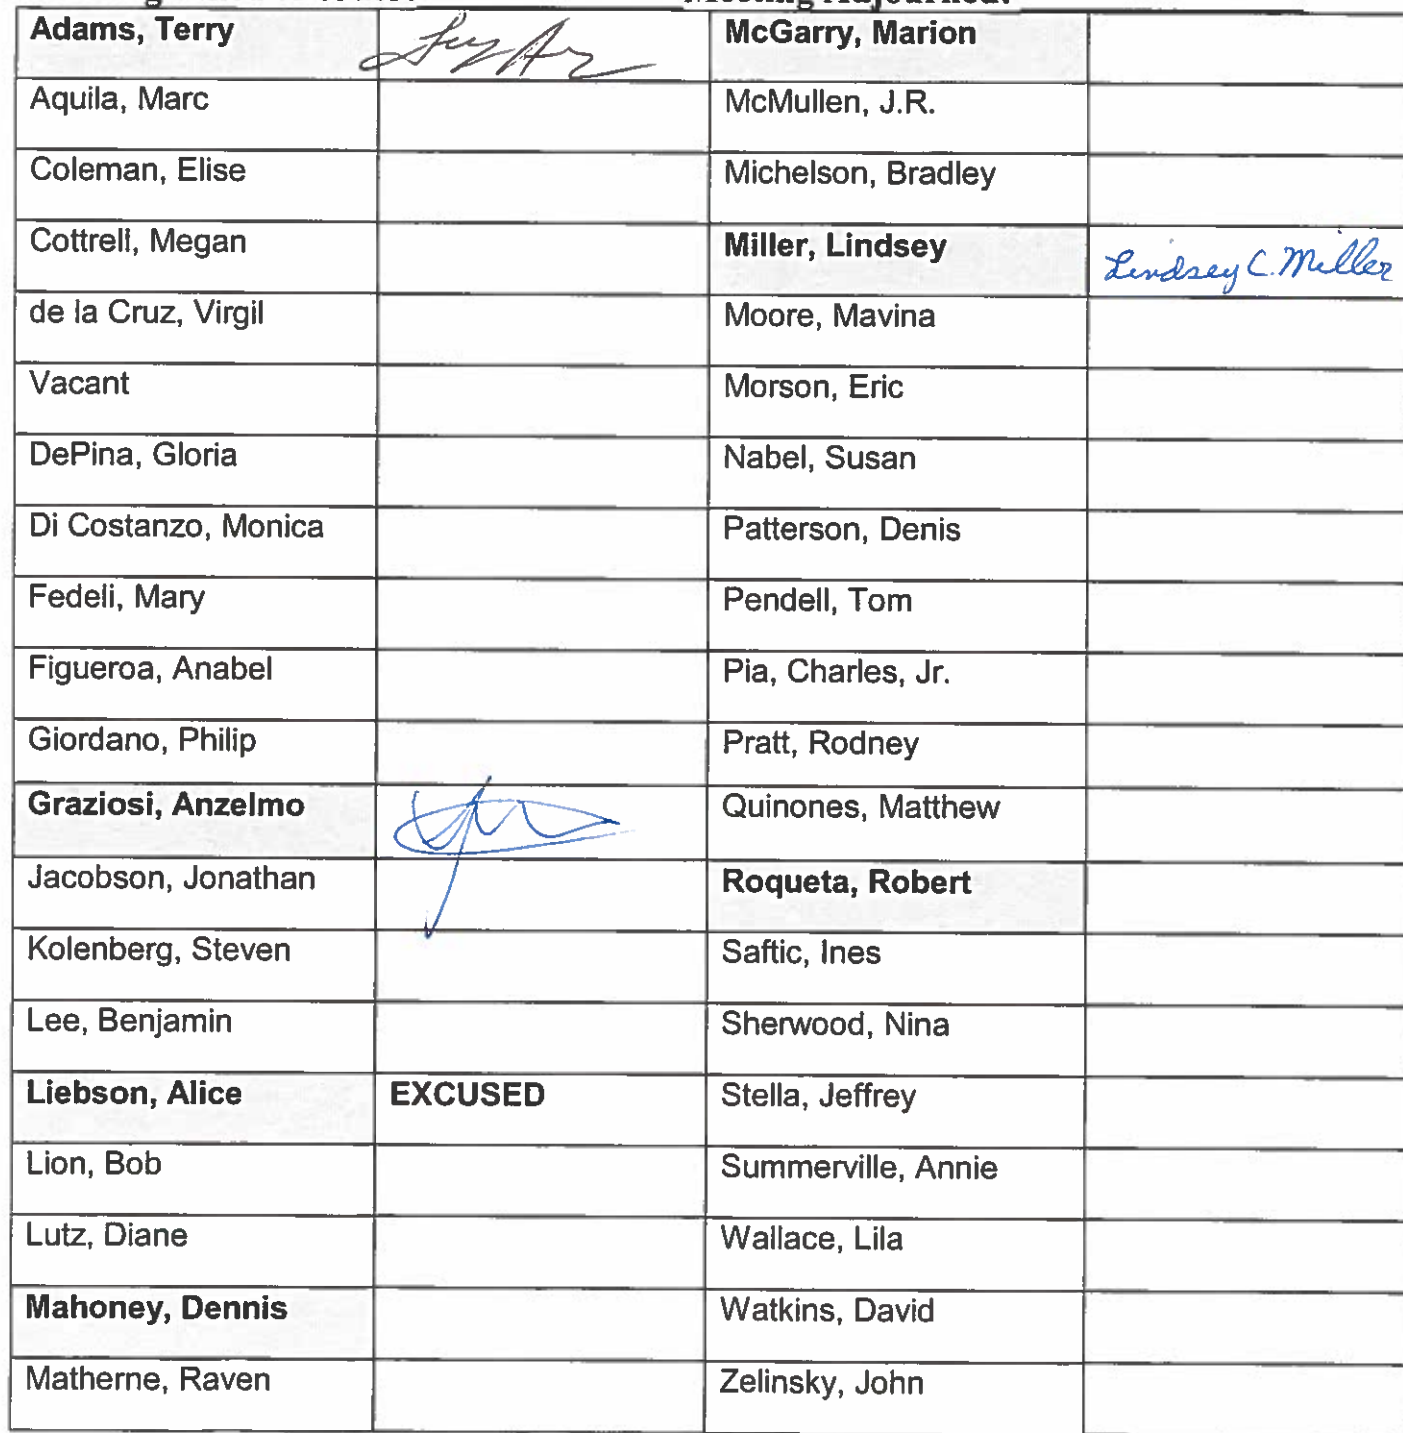 Meeting Adjourned:
Adams, Terry McGarry, Marion
Aquila, Marc McMullen, J.R.
Coleman, Elise Michelson, Bradley
Cottrell, Megan Miller, Lindsey Lindsey C. Miller
de la Cruz, Virgil Moore, Mavina
Vacant Morson, Eric
DePina, Gloria Nabel, Susan
Di Costanzo, Monica Patterson, Denis
Fedeli, Mary Pendell, Tom
Figueroa, Anabel Pia, Charles, Jr.
Giordano, Philip Pratt, Rodney
Graziosi, Anzelmo Quinones, Matthew
Jacobson, Jonathan Roqueta, Robert
Kolenberg, Steven Saftic, Ines
Lee, Benjamin Sherwood, Nina
Liebson, Alice EXCUSED Stella, Jeffrey
Lion, Bob Summerville, Annie
Lutz, Diane Wallace, Lila
Mahoney, Dennis Watkins, David
Matherne, Raven Zelinsky, John